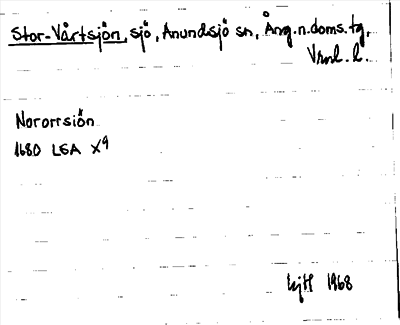 Stor-Vårtsjön, sjö, Anundsjö sn, Ång.n.doms.tg,
Vrml. l.
Nororrsiön
1680 LSA X9
1968